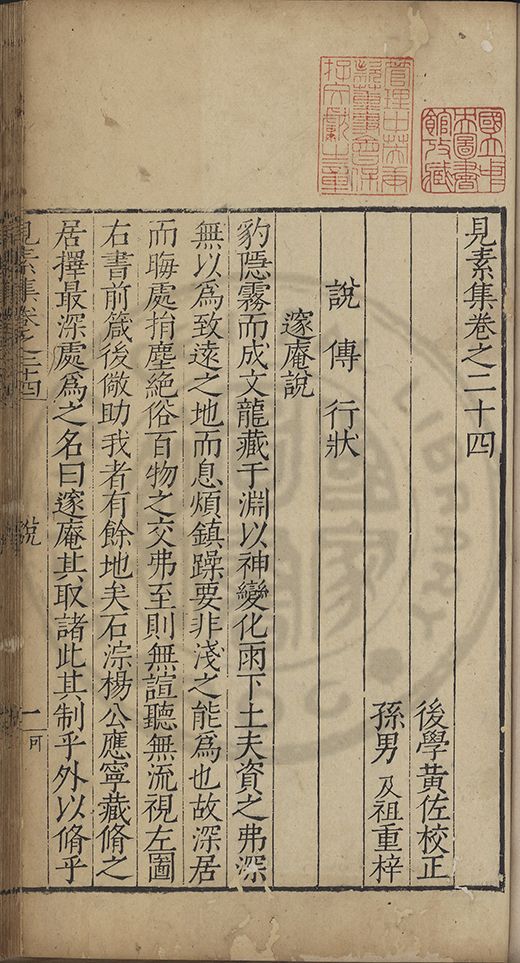 見素集卷之二十四
後學黃佐校正
孫男及祖重梓
說傳行狀
邃庵說
豹隱霧而成文龍藏于淵以神變化雨下土夫資之弗深
無以爲致遠之地而息煩鎮躁要非淺之能爲也故深居
而晦處捐塵絶俗百物之交弗至則無諠聽無流視左圖
右書前箴後儆助我者有餘地矣石淙楊公應寧藏脩之
居擇最深處爲之名曰邃庵其取諸此其制乎外以脩乎
見素集卷之二十四
說
一
可
國立中央圖書館攷藏
管理中英庚款董事會保存文獻之章